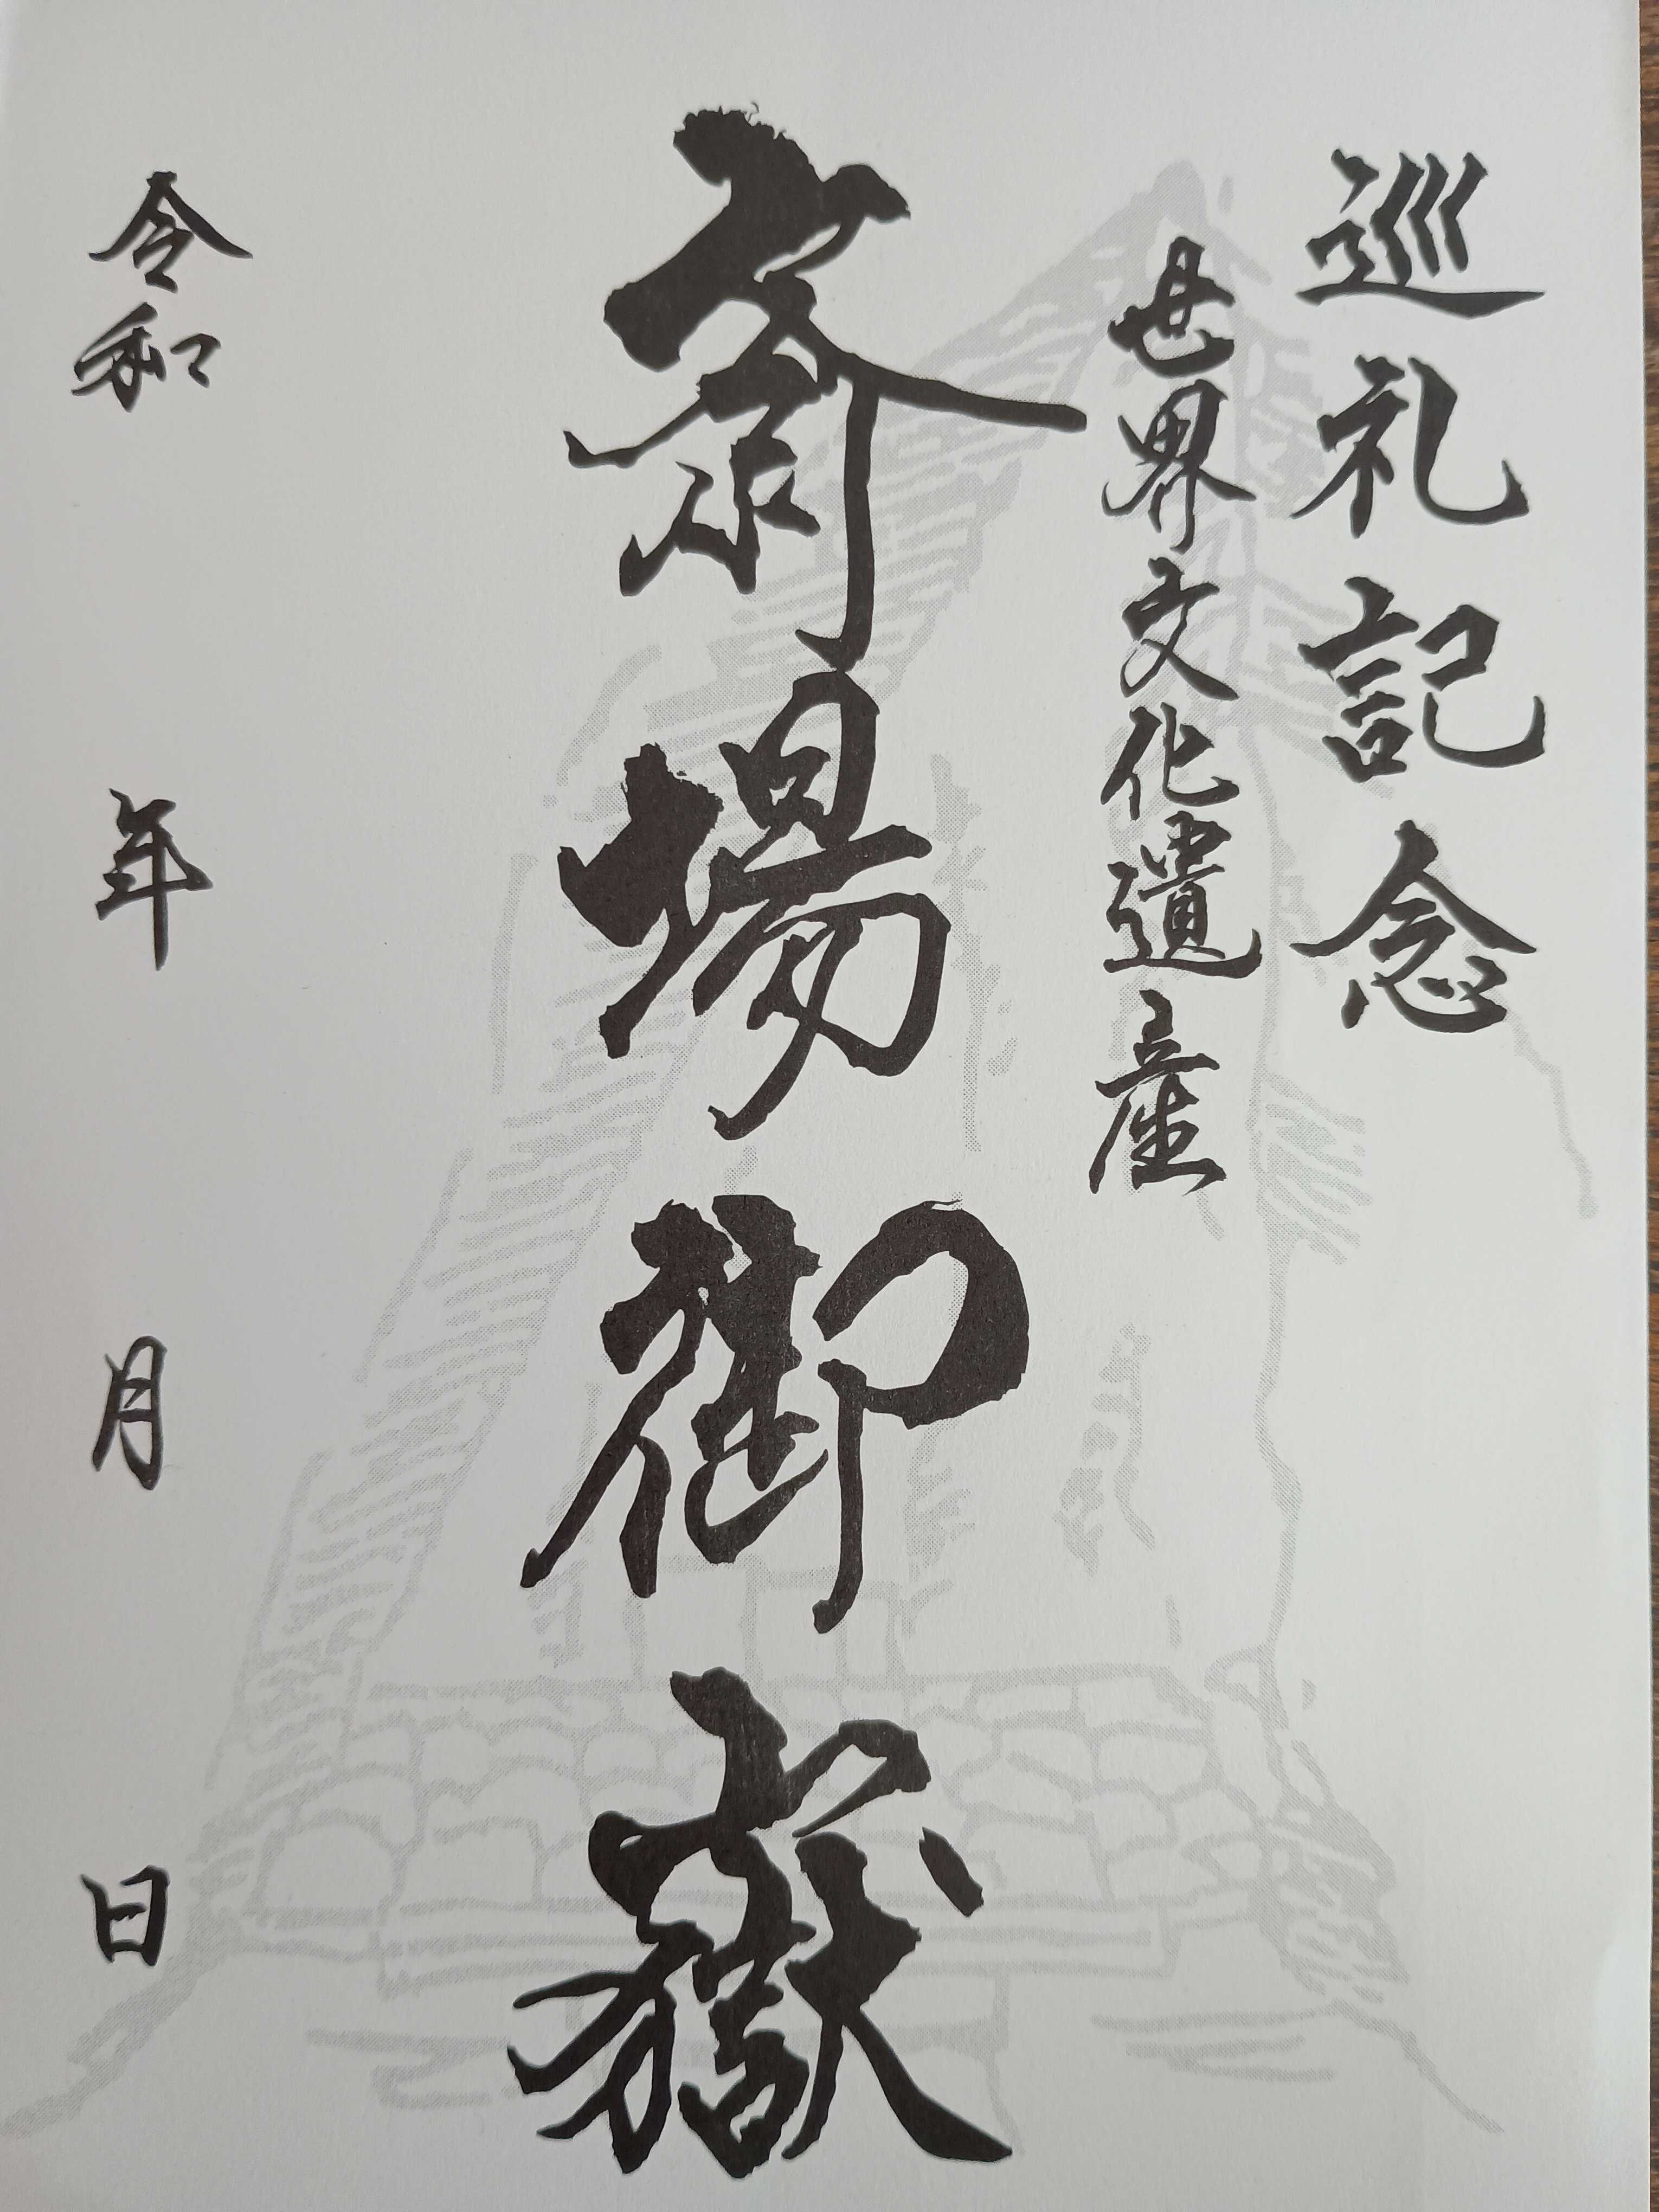 巡礼記念
世界文化遺産
斎場御嶽
令和 年 月 日